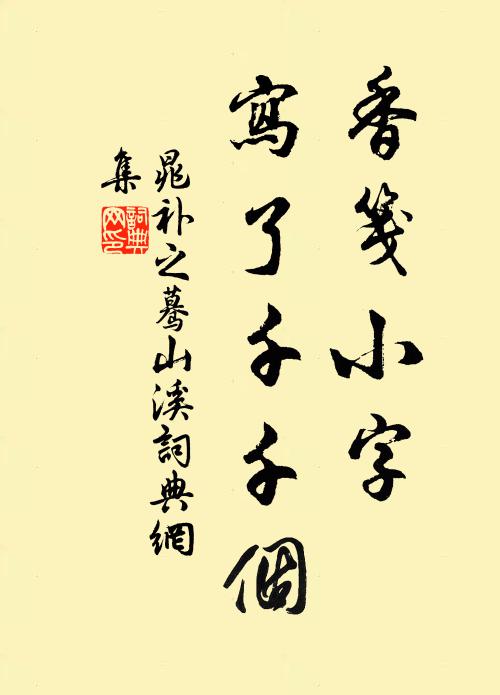 香箋小字
寫了千千個
晁补之蓦山溪詞典網
集
詞典
网印